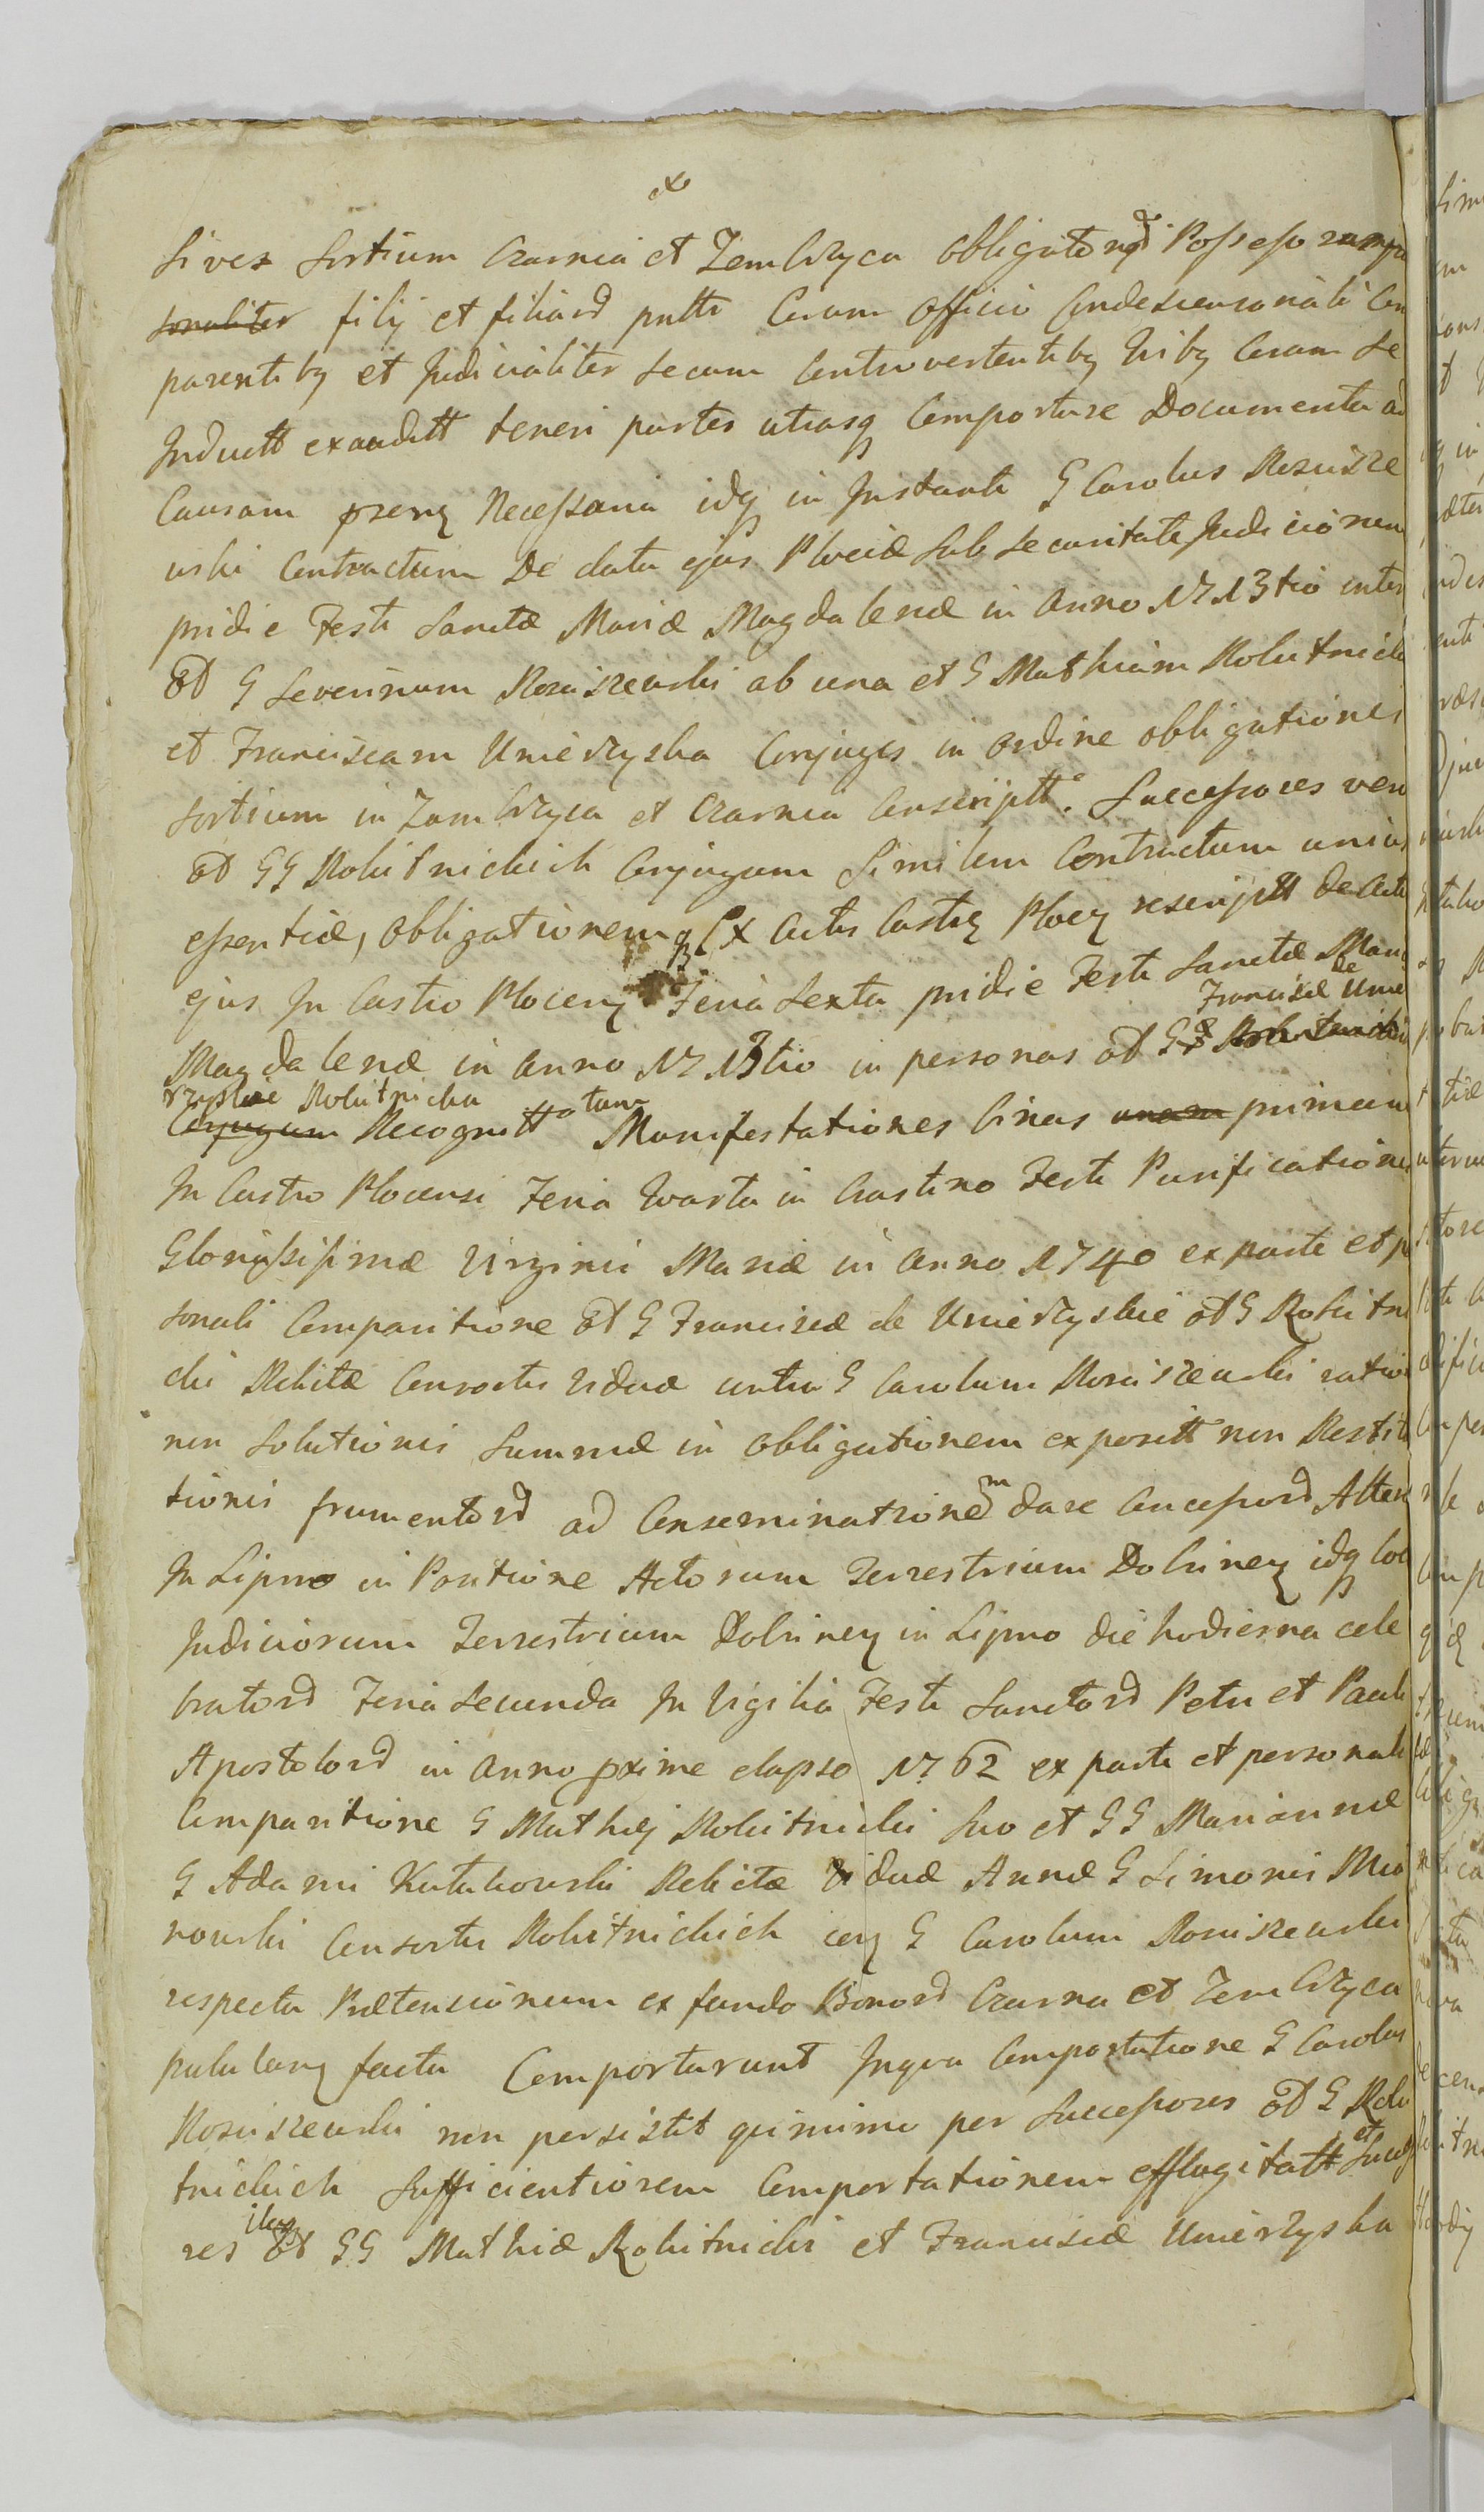 sives sortium Czarnia et Zembrzyca obligatorios Possesso
sonaliter filij et filiard pntte Coram Officio Condescensoriali Com
parentibg et Judicialiter secum Controvertentibg tribg Coram se
Inductt exauditt teneri partes utrasq Comportare Documenta ad
Causam prnz Necessaria idq in Instanti G Carolus Rosisze
wski Contractum De data ejus Plociæ sub securitate Judiciorum
pridie Festi Sanctæ Mariæ Magdalenæ in Anno 1713tio inter
Od G Severinum Rosiszewski ab una et G Mathiam Rokitnicki
et Franciscam Umierzyska Conjuges in ordine obligationis
sortium in Zambrzyca et Czarnia Conscriptt. Successores vero
Od GG Rokitnickich Conjugum Similem Contractum unius
essentiæ, obligationemq Ex Actis Castrz Plocz rescriptt de acta
ejus In Castro Plocenz Feria Sexta pridie Festi Sanctæ Mariæ
Magdalenæ in Anno 1713tio in personas Od G Franciscæ de Umie
rzyskie Rokitnicka Conjugum Recognitt tam Manifestationes binas unam primam
In Castro Plocensi Feria Quarta in Crastino Festi Purificationis
Gloriosissimæ Virginis Mariæ in Anno 1740 ex parte et p
sonali Comparitione Od G Franciscæ de Umierzyskie Od G Rokitni
cki Relictæ Consortis Viduæ contra G Carolum Rosiszewski ratio
non Solutionis Summæ in obligationem expositt non Restitu
tionis frumentord ad Conseminationem dare Concessord Alteram
In Lipno in Positione Actorum Terrestrium Dobrinenz idq loc
Judiciorum Terrestrium Dobrinenz in Lipno die hodierna cele
bratord Feria Secunda In Vigilia Festi Sanctord Petri et Pauli
Apostolord in Anno pxime elapso 1762 ex parte et personali
Comparitione G Mathij Rokitnicki suo et GG Mariannæ
G Adami Kutukowski Relictæ Viduæ Annæ G Simonis Mio
nowski Consortis Rokitnickich cez G Carolum Rosiszewski
respectu Prætensionum ex fundo Bonord Czarna et Zembrzyca
pululanz facta Comportarunt Inqva Comportatione G Carolus
Rosiszewski non persistit qvinimo per Successores Od G Roki
tnickich Sufficientiorem Comportationem efflagitatt et Successo
res ibq Od GG Mathiæ Rokitnicki et Franciscæ Umierzyska